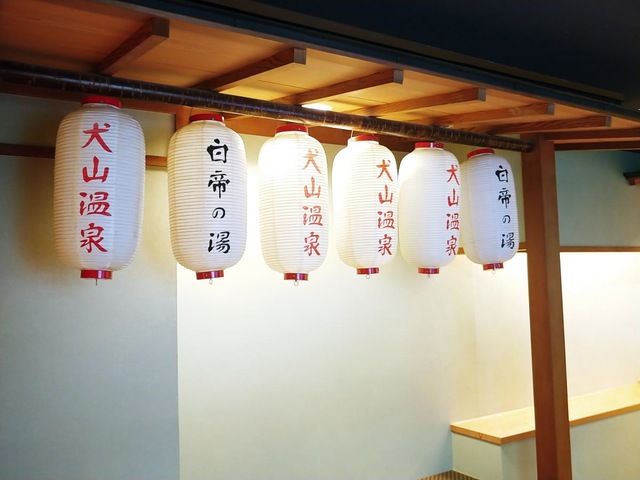 犬山温泉
白帝の湯
犬山温泉
犬山温泉
犬山温泉
白帝の湯